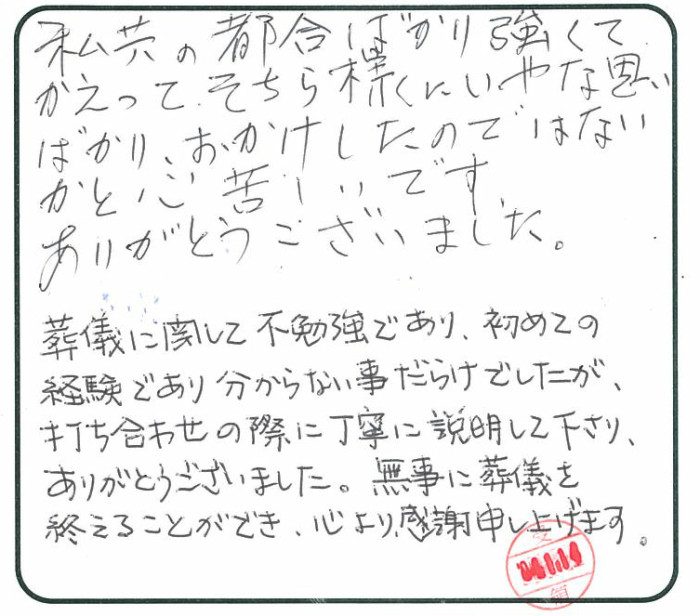 私共の都合ばかり強くて
かえって、そちら様にいやな思い
ばかり、おかけしたのではない
かと心苦しいです。
ありがとうございました。
葬儀に関して不勉強であり、初めての
経験であり分からない事だらけでしたが、
打ち合わせの際に丁寧に説明して下さり、
ありがとうございました。無事に葬儀を
終えることができ、心より感謝申し上げます。
受
04.1.14
領